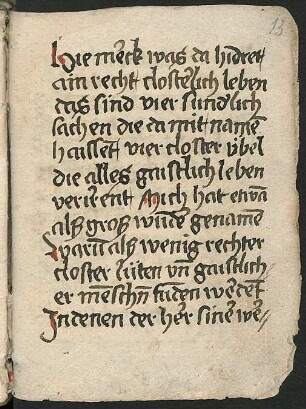 13
Hie merck was da hidret
ain recht closterlich leben
das sind vier sundlich
sachen die da mit namē
haisset vier closter v̈bel
die alles gaistlich leben
verirent Mich hat etwa
alß groß wūder genamē
Warū alß wenig rechter
closter lúten vn̄ gaistlich
er mēschn̄ fūden werdet
In denen der her sinē we